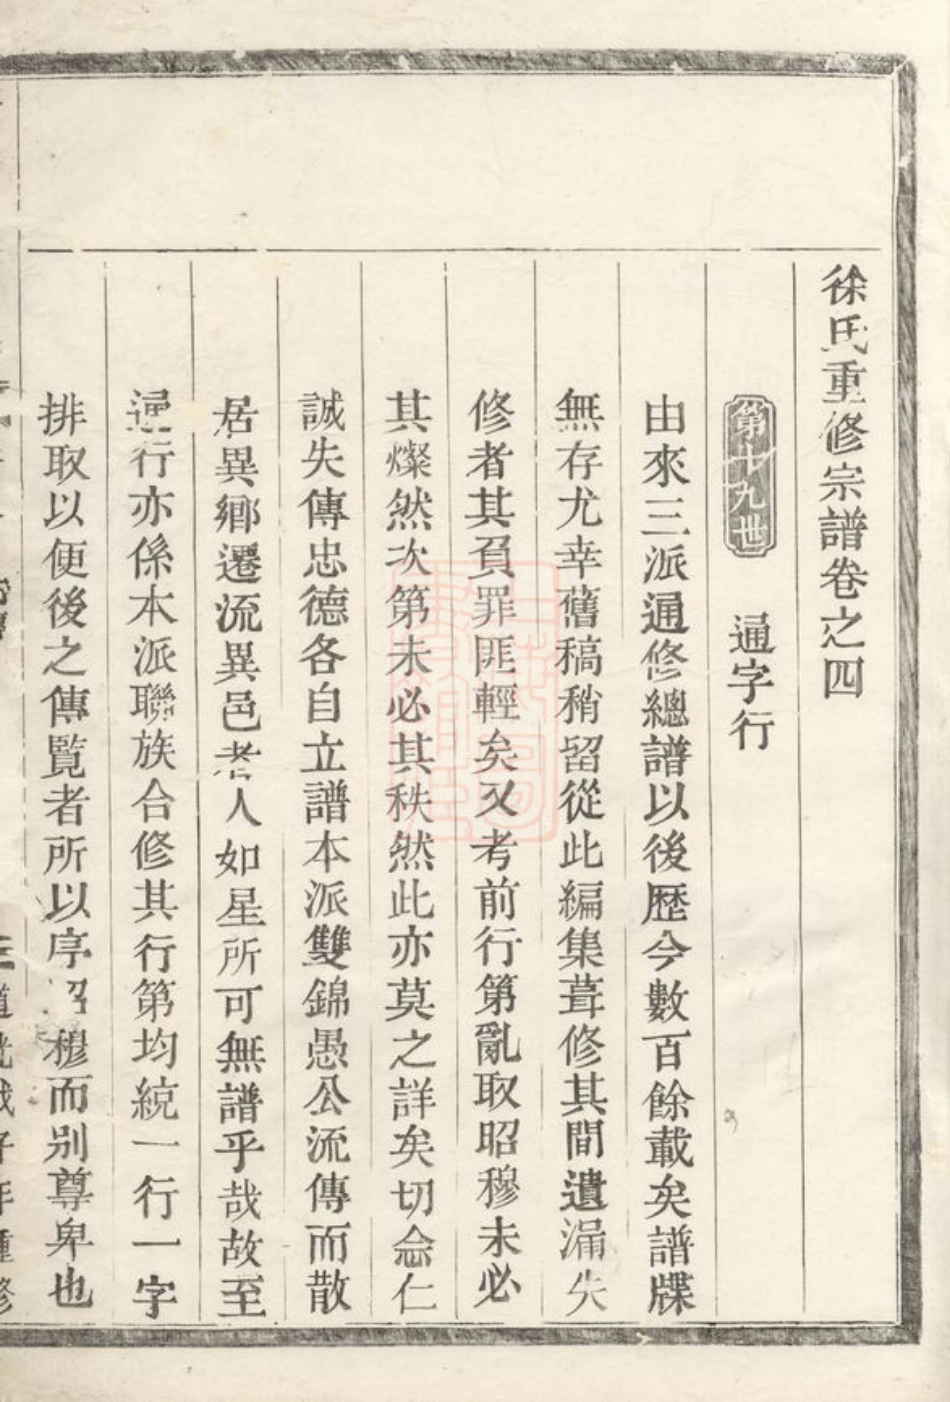 徐氏重修宗譜卷之四
第十九世 通字行
由來三派通修總譜以後歷今數百餘載矣譜牒
無存尤幸舊稿稍留從此編集葺修其間遺漏失
修者其負罪匪輕矣又考前行第亂取昭穆未必
其燦然次第未必其秩然此亦莫之詳矣切念仁
誠失傳忠德各自立譜本派雙錦愚公流傳而散
居異鄉遷流異邑者人如星所可無譜乎哉故至
通行亦係本派聯族合修其行第均統一行一字
排取以便後之傳覽者所以序昭穆而別尊卑也